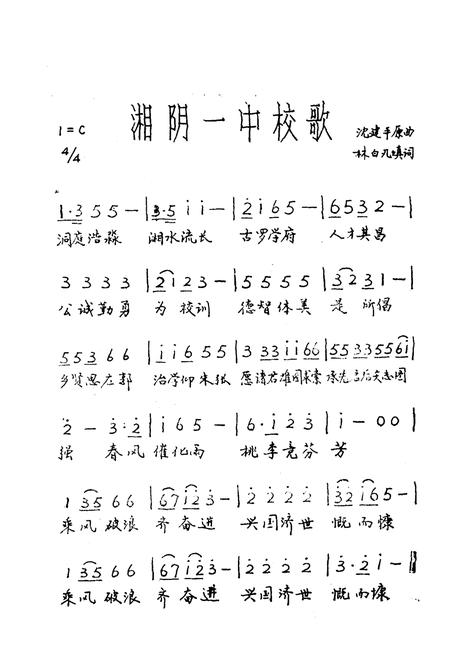 湘阴一中校歌
1=C 沈建平原曲
4/4 林白九填词
1·3 5 5 — | 3·5 i i — | 2 i 6 5 — | 6 5 3 2 — |
洞庭浩淼 湘水流长 古罗学府 人才其昌
3 3 3 3 | 2 1 2 3 — | 5 5 5 5 | 3 2 3 1 — |
公诚勤勇 为校训 德智体美 是所倡
5 5 3 6 6 | i i 6 5 5 | 3 3 3 i i 6 6 | 5 5 3 3 5 5 6 i |
乡贤思左郭 治学仰朱张 愿诸君雄图
2 — 3·2 | i 6 5 — | 6·i 2 3 | i — 0 0 |
强 春风催化雨 桃李竞芬芳
1 3 5 6 6 | 6 7 i 2 3 — | 2 2 2 2 | 3 2 i 6 5 — |
乘风破浪 齐奋进 兴国济世 慨而慷
1 3 5 6 6 | 6 7 i 2 3 — | 2 2 2 2 | 3·2 i — ‖
乘风破浪 齐奋进 兴国济世 慨而慷